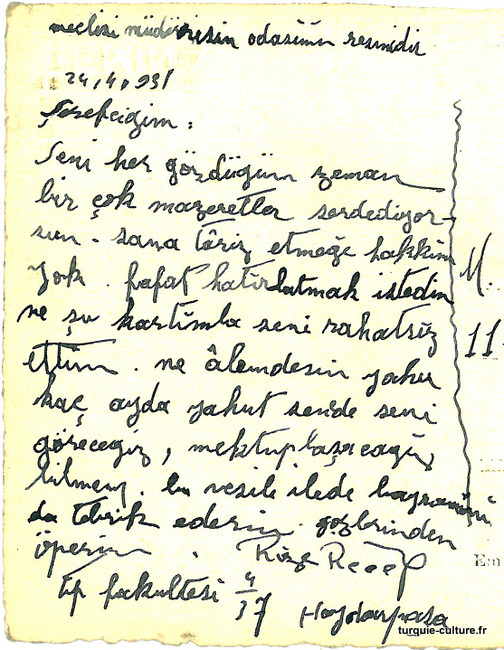 meclisi müdürisin odasının resmidir
24/4/931
Şerefciğim :
Seni her gözdügüm zeman
bir çok mazeretler serdediyor-
sun. sana târiz etmeğe hakkim
yok. fafat hatırlatmak istedim
ne şu kartımla seni rahatsız
ettim. ne âlemdesin yahu
kaç ayda yahut senede seni
göreceğiz, mektuplaşacağız
bilmem. bu vesile ilede bayramını
da tebrik ederim. gözlerinden
öperim.
Tıp fakultesi 4/37 Haydarpaşa
M.
11
Em
turquie-culture.fr